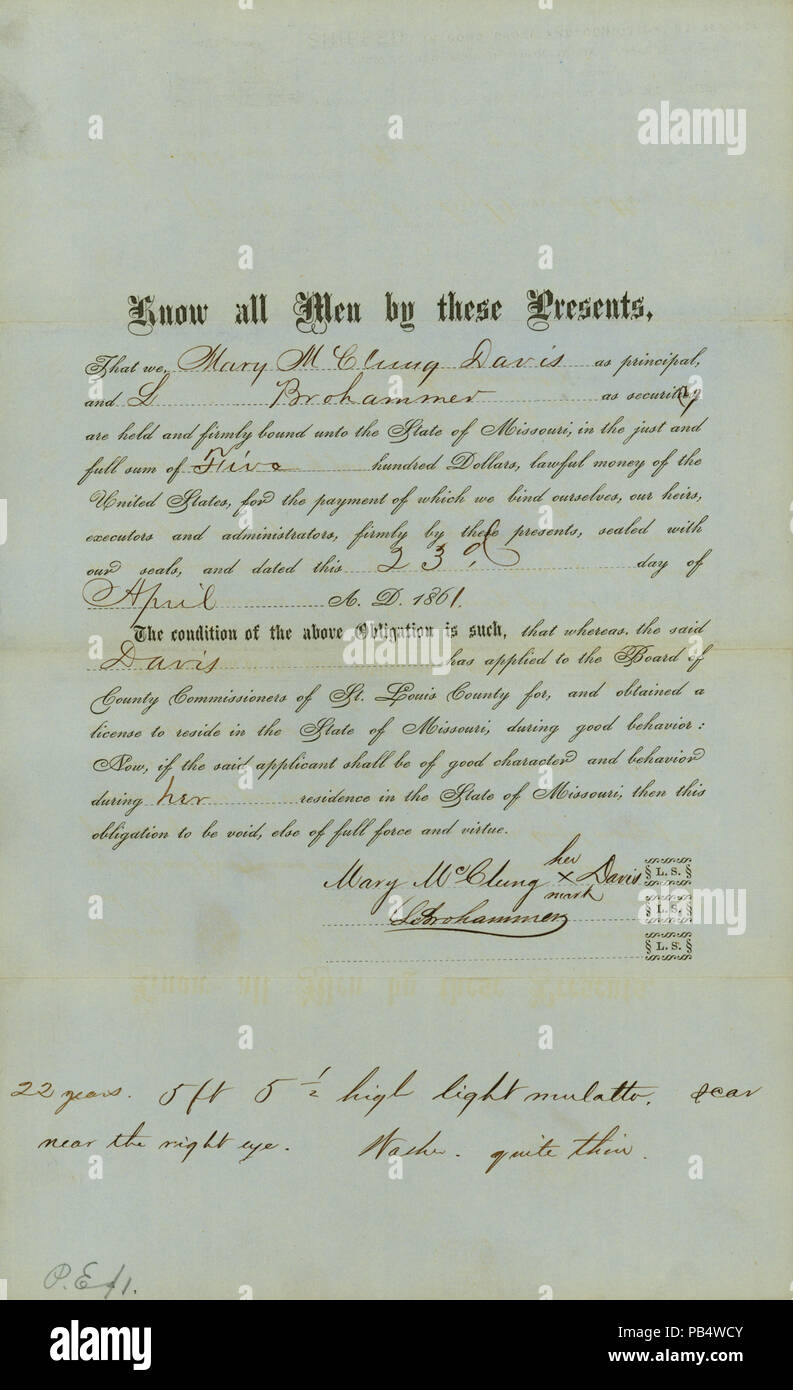 Know all Men by these Presents,
That we, Mary McClung Davis as principal,
and L Brohammer as security
are held and firmly bound unto the State of Missouri, in the just and
full sum of Five hundred Dollars, lawful money of the
United States, for the payment of which we bind ourselves, our heirs,
executors and administrators, firmly by these presents, sealed with
our seals, and dated this 23d. day of
April A. D. 1861.
The condition of the above Obligation is such, that whereas, the said
Davis has applied to the Board of
County Commissioners of St. Louis County for, and obtained a
license to reside in the State of Missouri, during good behavior:
Now, if the said applicant shall be of good character and behavior
during her residence in the State of Missouri, then this
obligation to be void, else of full force and virtue.
her
Mary McClung x Davis § L. S. §
mark
L Brohammer § L. S. §
§ L. S. §
22 years. 5 ft 5 1/2 high light mulatto. scar
near the right eye. Washer. quite thin.
alamy
a alamy stock photo
alamy
Image ID: PB4WCY
www.alamy.com